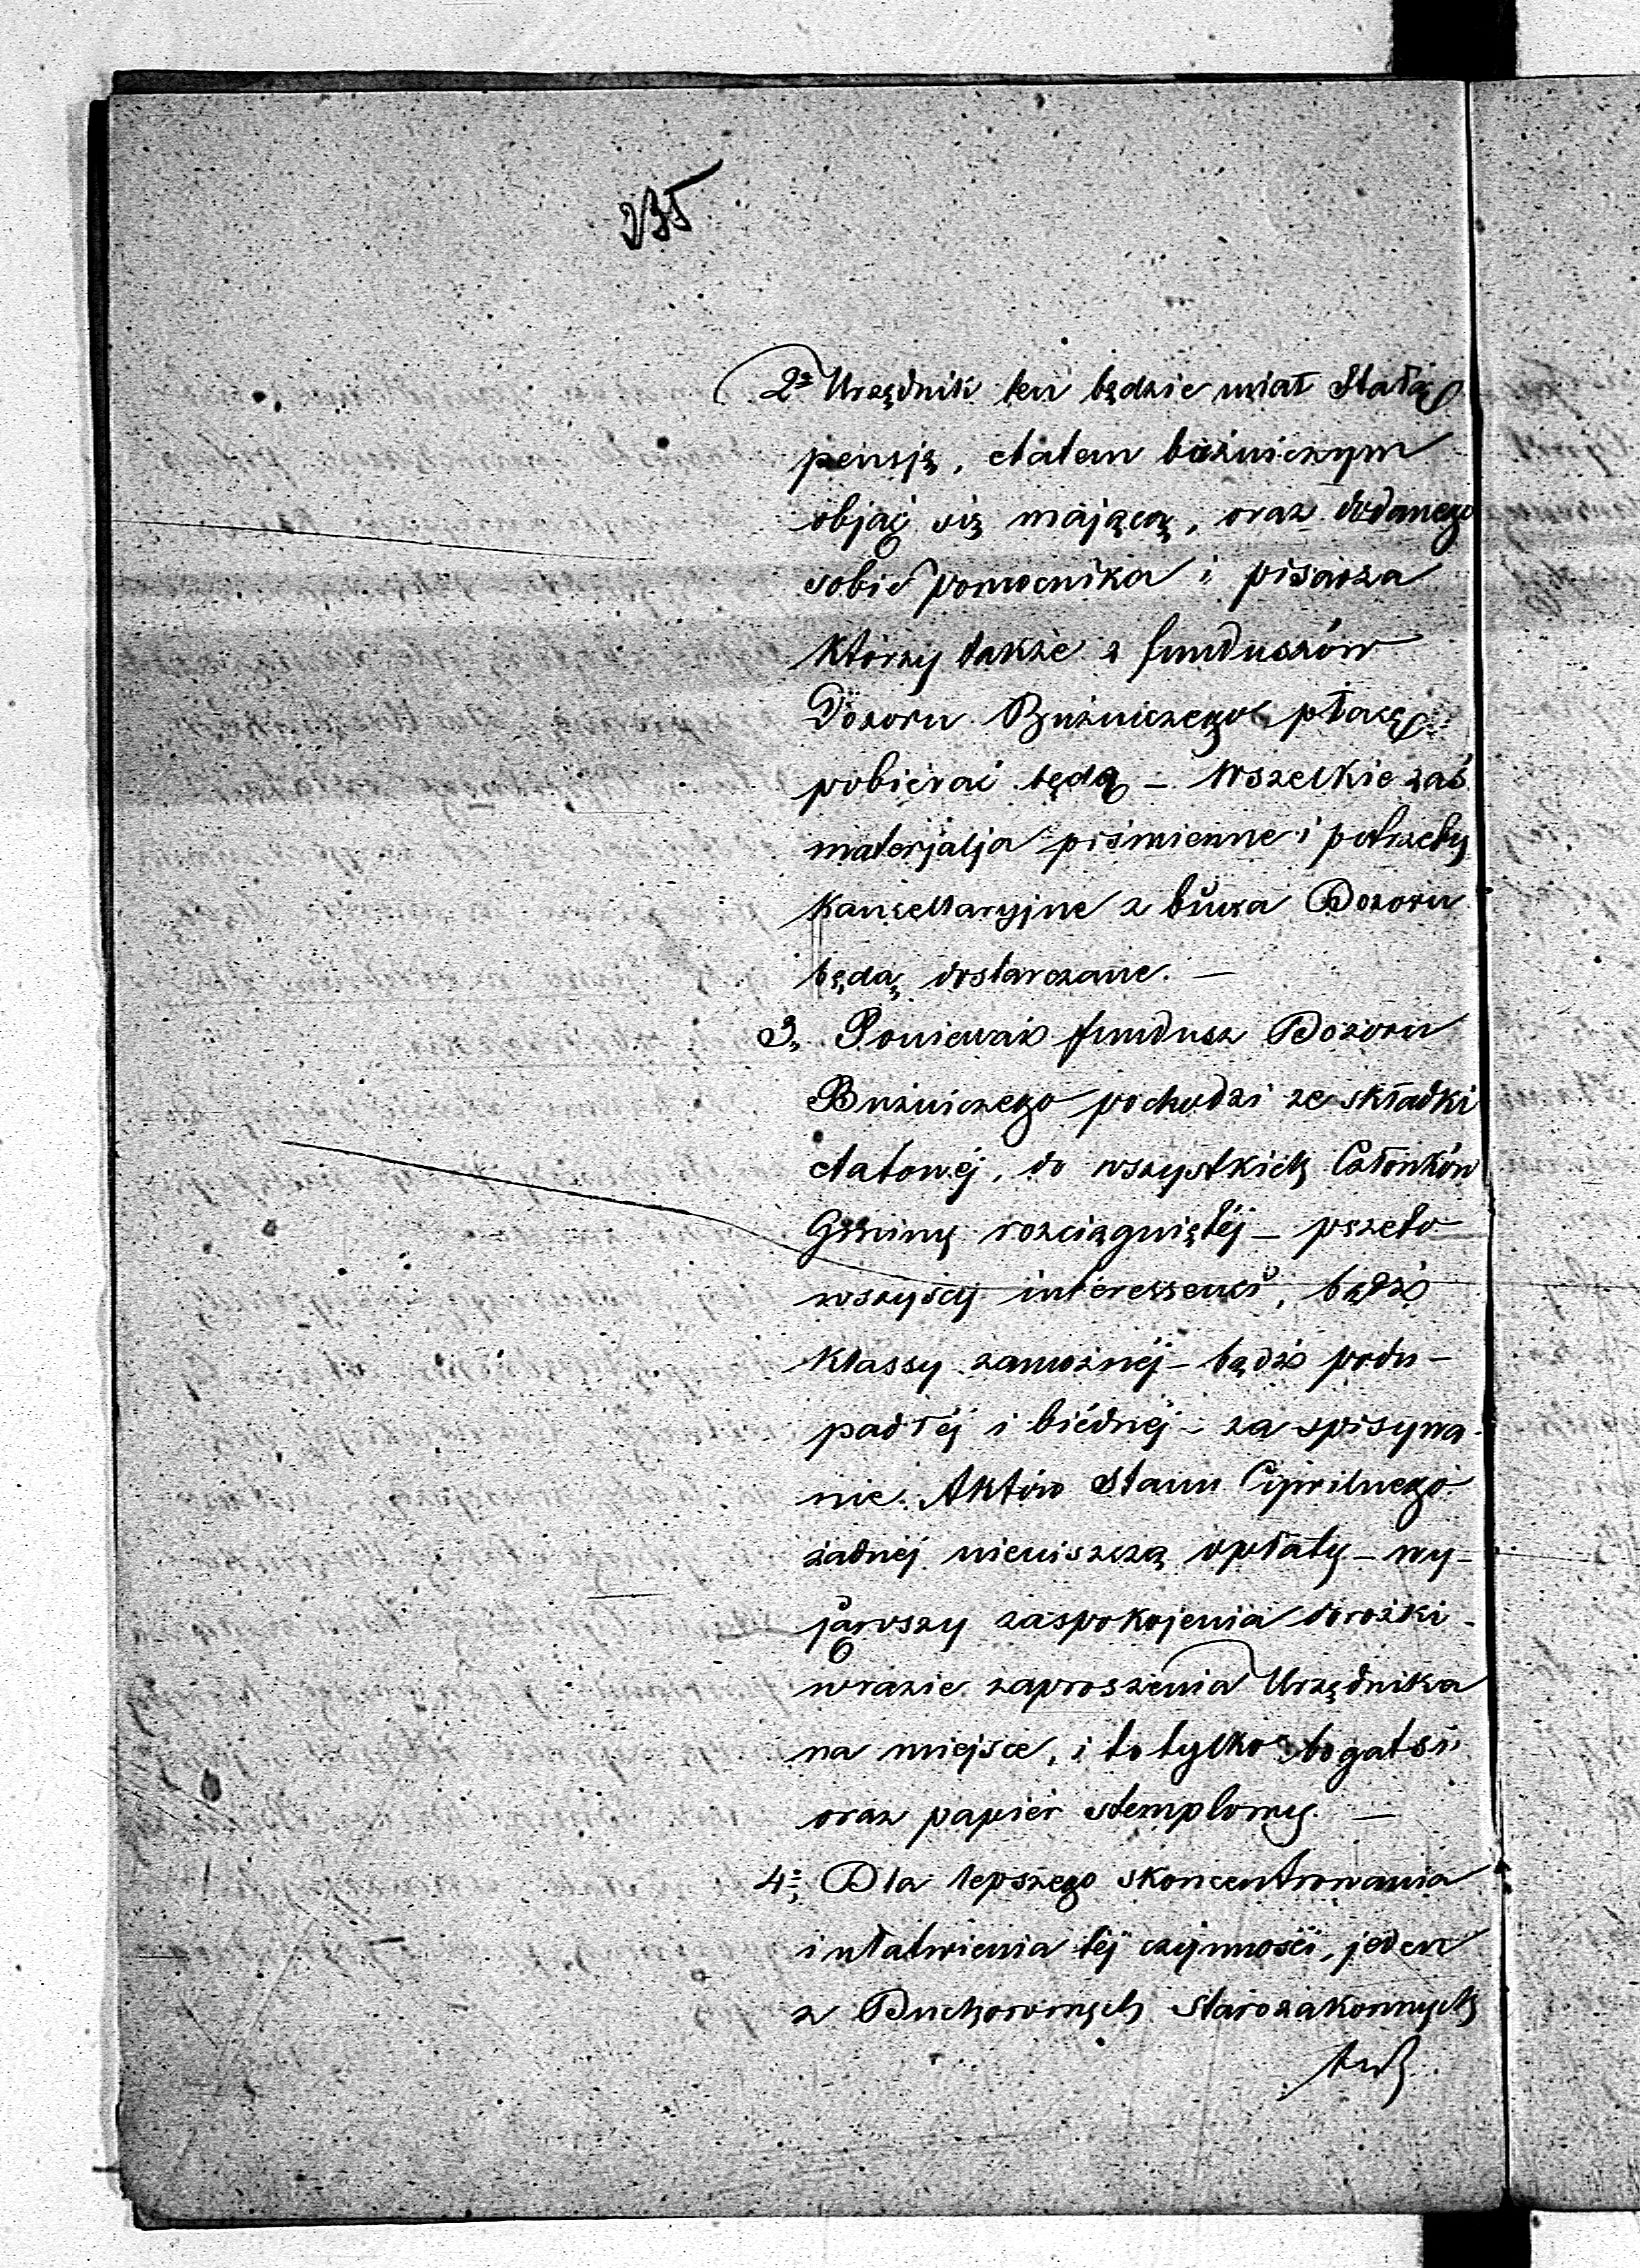 235
2º Urzędnik ten będzie miał Stałą
pensję, etatem bóżniczym
objąć się mającą, oraz dodanego
sobie pomocnika i pisarza
którzy także z funduszów
Dozoru Bużniczego płacę
pobierać będą – Wszelkie zaś
materjalja piśmienne i potrzeby
kancellaryjne z biura Dozoru
będą dostarczane. —
3, Ponieważ fundusz Dozoru
Bużniczego pochodzi ze składki
etatowéj, do wszystkich Członków
Gminy rozciągniętéj – przeto
wszyscy interessenci, bądź
klassy zamożnéj – bądź podu-
padłéj i biédnéj – za spisywa-
nie Aktów Stanu Cywilnego
żadnéj nieuiszczą opłaty – wy-
jąwszy zaspokojenia dorożki
wrazie zaproszenia Urzędnika
na miejsce, i to tylko bogatsi
oraz papiér stemplowy. —
4º, Dla lepszego skoncentrowania
i ułatwienia téj czynności, jeden
z Duchownych Starozakonnych